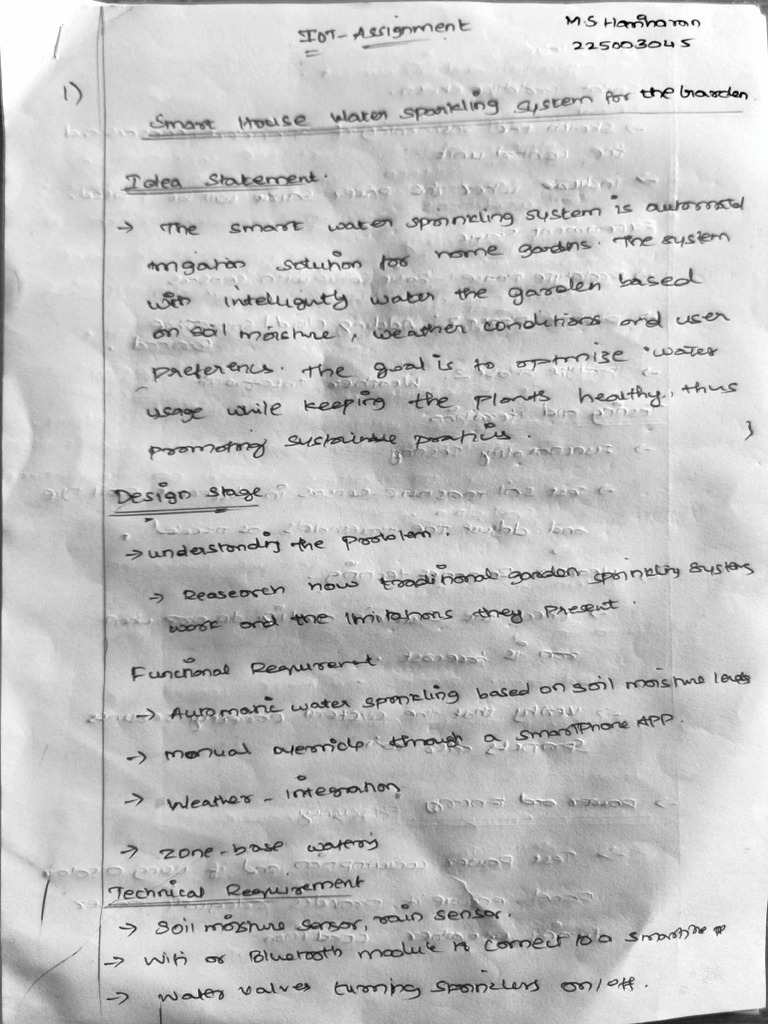 IOT-Assignment
M.S Hariharan
225003045
1)
Smart House Water Sparkling System for the Garden
Idea Statement.
→ The smart water sprinkling system is automated
irrigation solution for home gardens. The system
with intelligently water the garden based
on soil moisture, weather conditions and user
preference. The goal is to optimize water
usage while keeping the plants healthy, thus
promoting sustainable practices.
Design Stage
→ understanding the problem.
→ Reaseorch how traditional garden sprinkling systems
work and the limitations they present.
Functional Requirement
→ Automatic water sprinkling based on soil moisture levels
→ manual override through a smartphone APP.
→ Weather - integration
→ zone-base watering
Technical Requirement
→ Soil moisture sensor, rain sensor.
→ Wifi or Bluetooth module to connect to a smartphone
→ water valves turning sprinklers on/off.